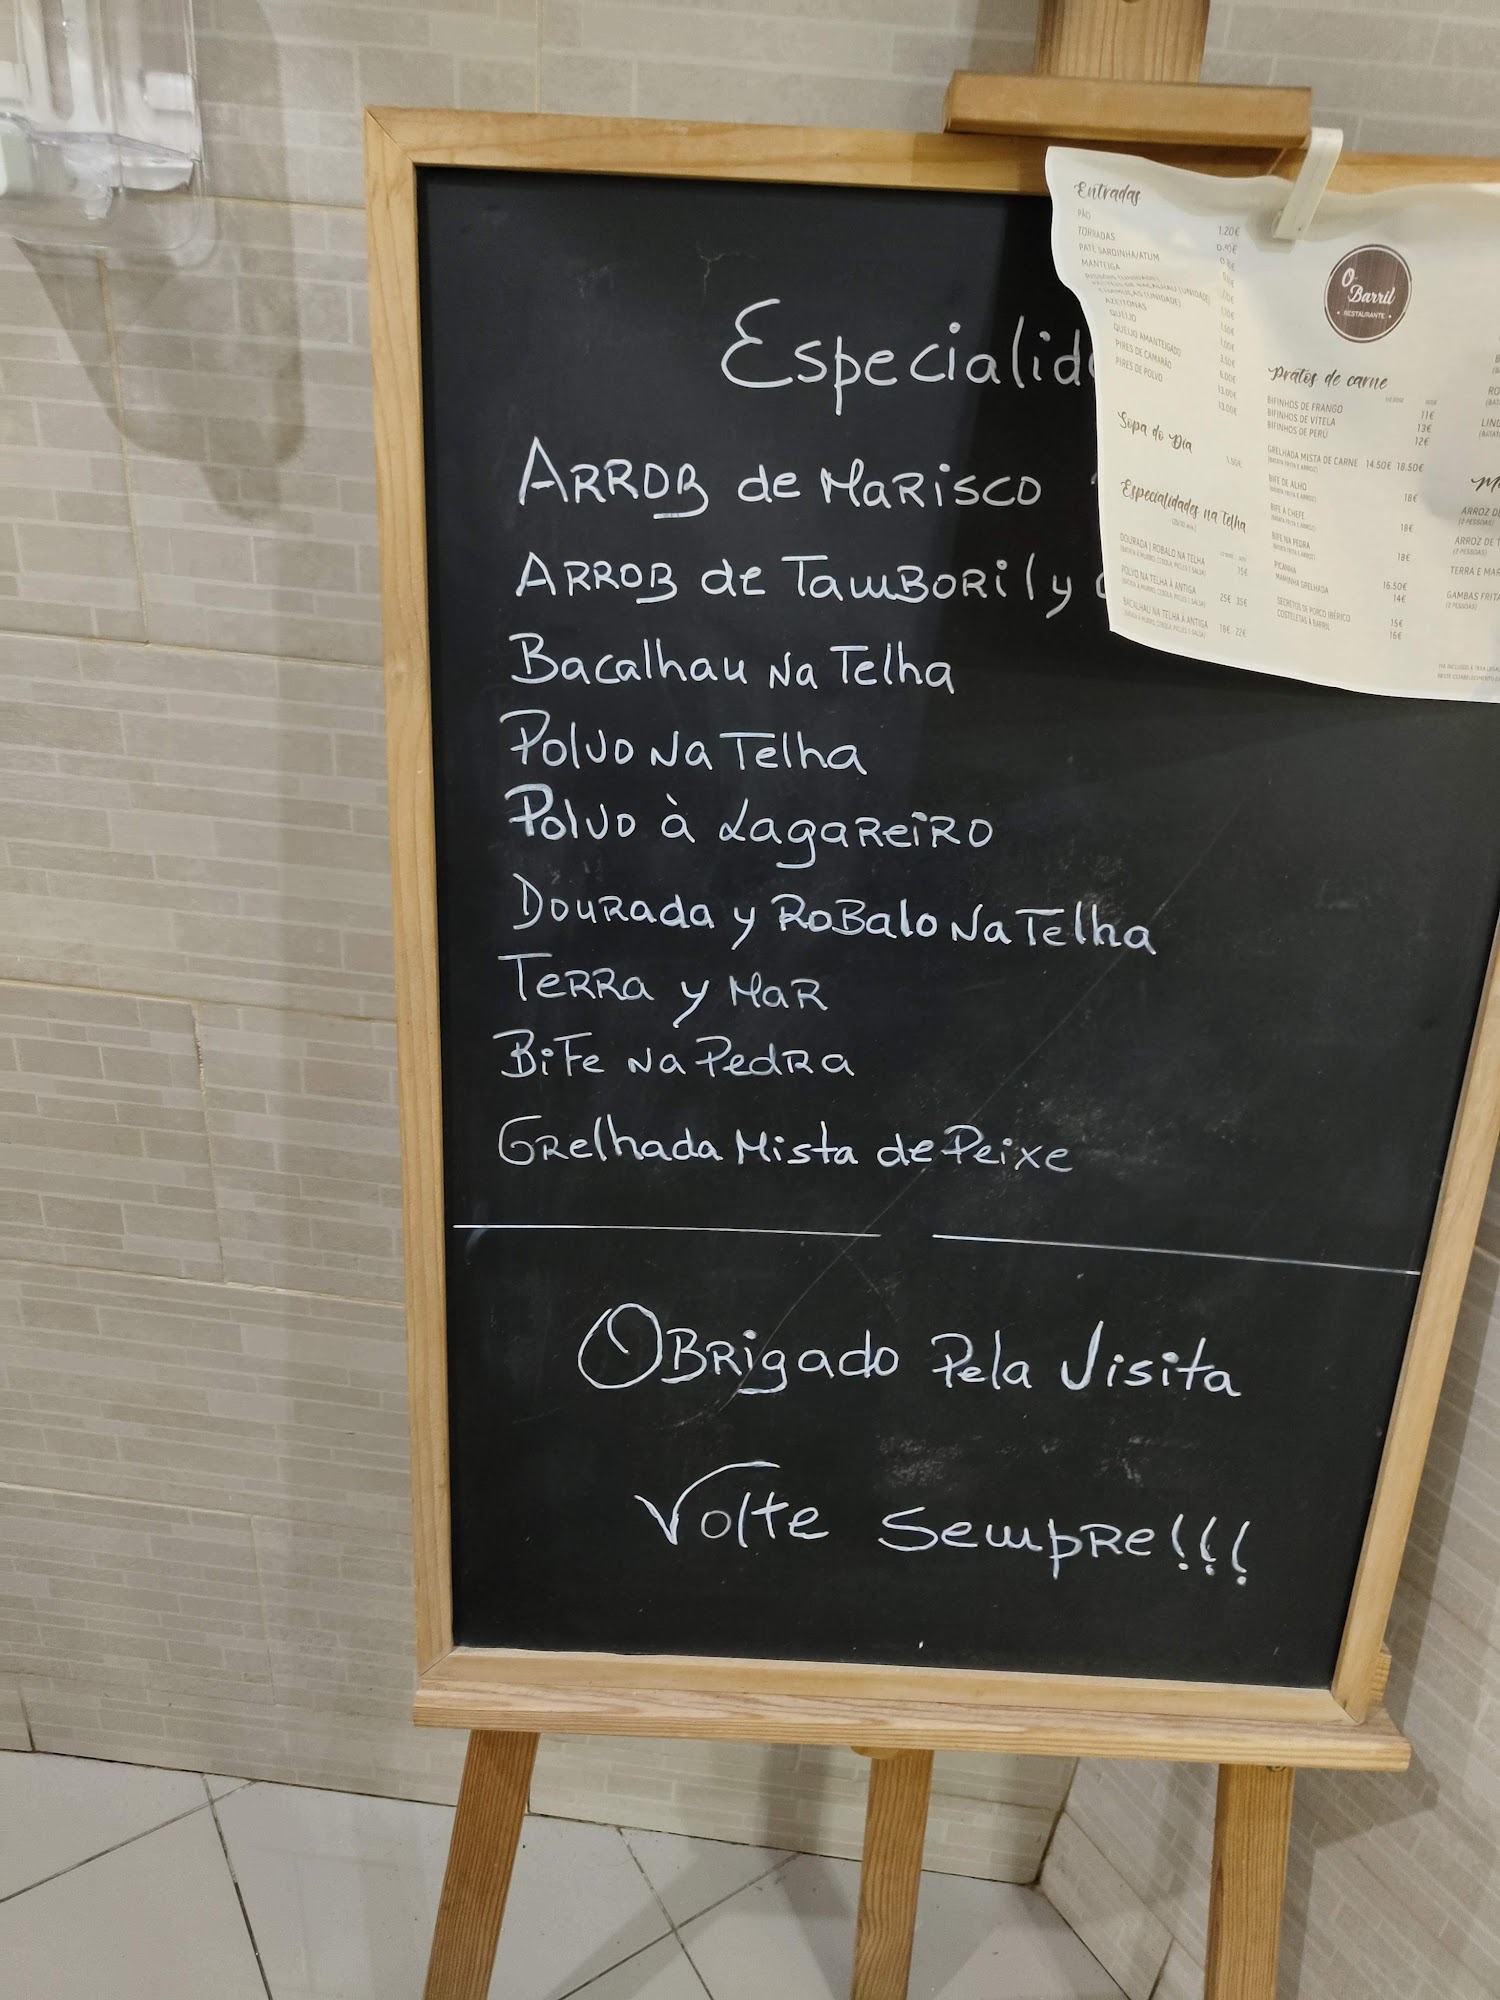 Especialid
ARROB de MaRisco
ARROB de TamBORil y
Bacalhau Na Telha
Polvo Na Telha
Polvo à LagaReiRO
DouRada y RoBalo Na Telha
TeRRa y MaR
BiFe Na PedRa
GRelhada Mista de Peixe
OBRigado Pela Visita
Volte SempRe!!!
Entradas
PÃO 1.20€
TORRADAS
PATÊ SARDINHA/ATUM
MANTEIGA
AZEITONAS
QUEIJO
QUEIJO AMANTEIGADO
PIRES DE CAMARÃO
PIRES DE POLVO
Sopa do Dia
1.50€
Especialidades na Telha
DOURADA | ROBALO NA TELHA 15€
POLVO NA TELHA À ANTIGA 25€ 35€
BACALHAU NA TELHA À ANTIGA 18€ 22€
O Barril
• RESTAURANTE •
Pratos de carne
BIFINHOS DE FRANGO 11€
BIFINHOS DE VITELA 13€
BIFINHOS DE PERÚ 12€
GRELHADA MISTA DE CARNE 14.50€ 18.50€
(BATATA FRITA E ARROZ)
BIFE DE ALHO 18€
(BATATA FRITA E ARROZ)
BIFE À CHEFE 18€
(BATATA FRITA E ARROZ)
BIFE NA PEDRA 18€
(BATATA FRITA E ARROZ)
PICANHA 16.50€
MAMINHA GRELHADA 14€
SECRETOS DE PORCO IBÉRICO 15€
COSTELETAS À BARRIL 16€
ARROZ D
(2 PESSOAS)
ARROZ DE T
(2 PESSOAS)
TERRA E MAR
GAMBAS FRITA
(2 PESSOAS)